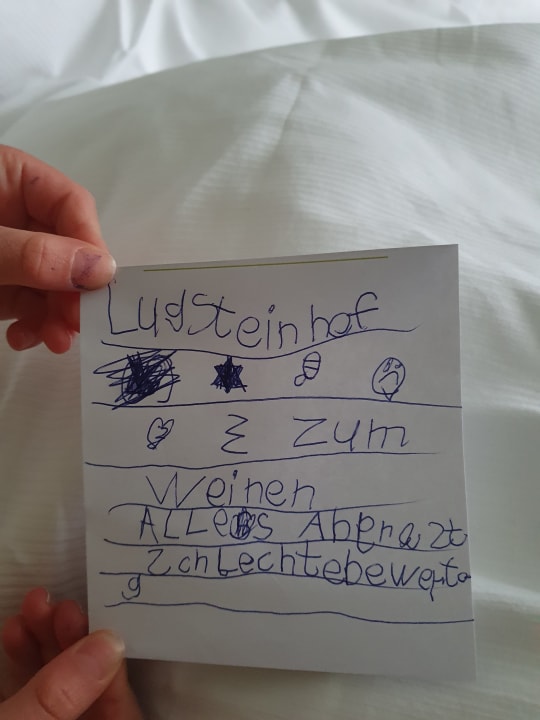 LudSteinhof
Zum
Weinen
ALLes Abgnazt
Zchlechtebewerto
g